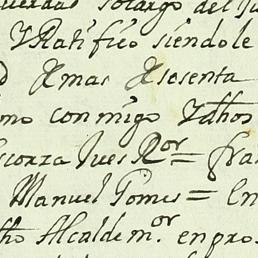 solargo del Ju
YRatifico siendole
Xmas Xsesenta
mo conmigo Ydhos
Juez Ror = fra
Manuel Gomes = En
dho Alcaldem.or enpro